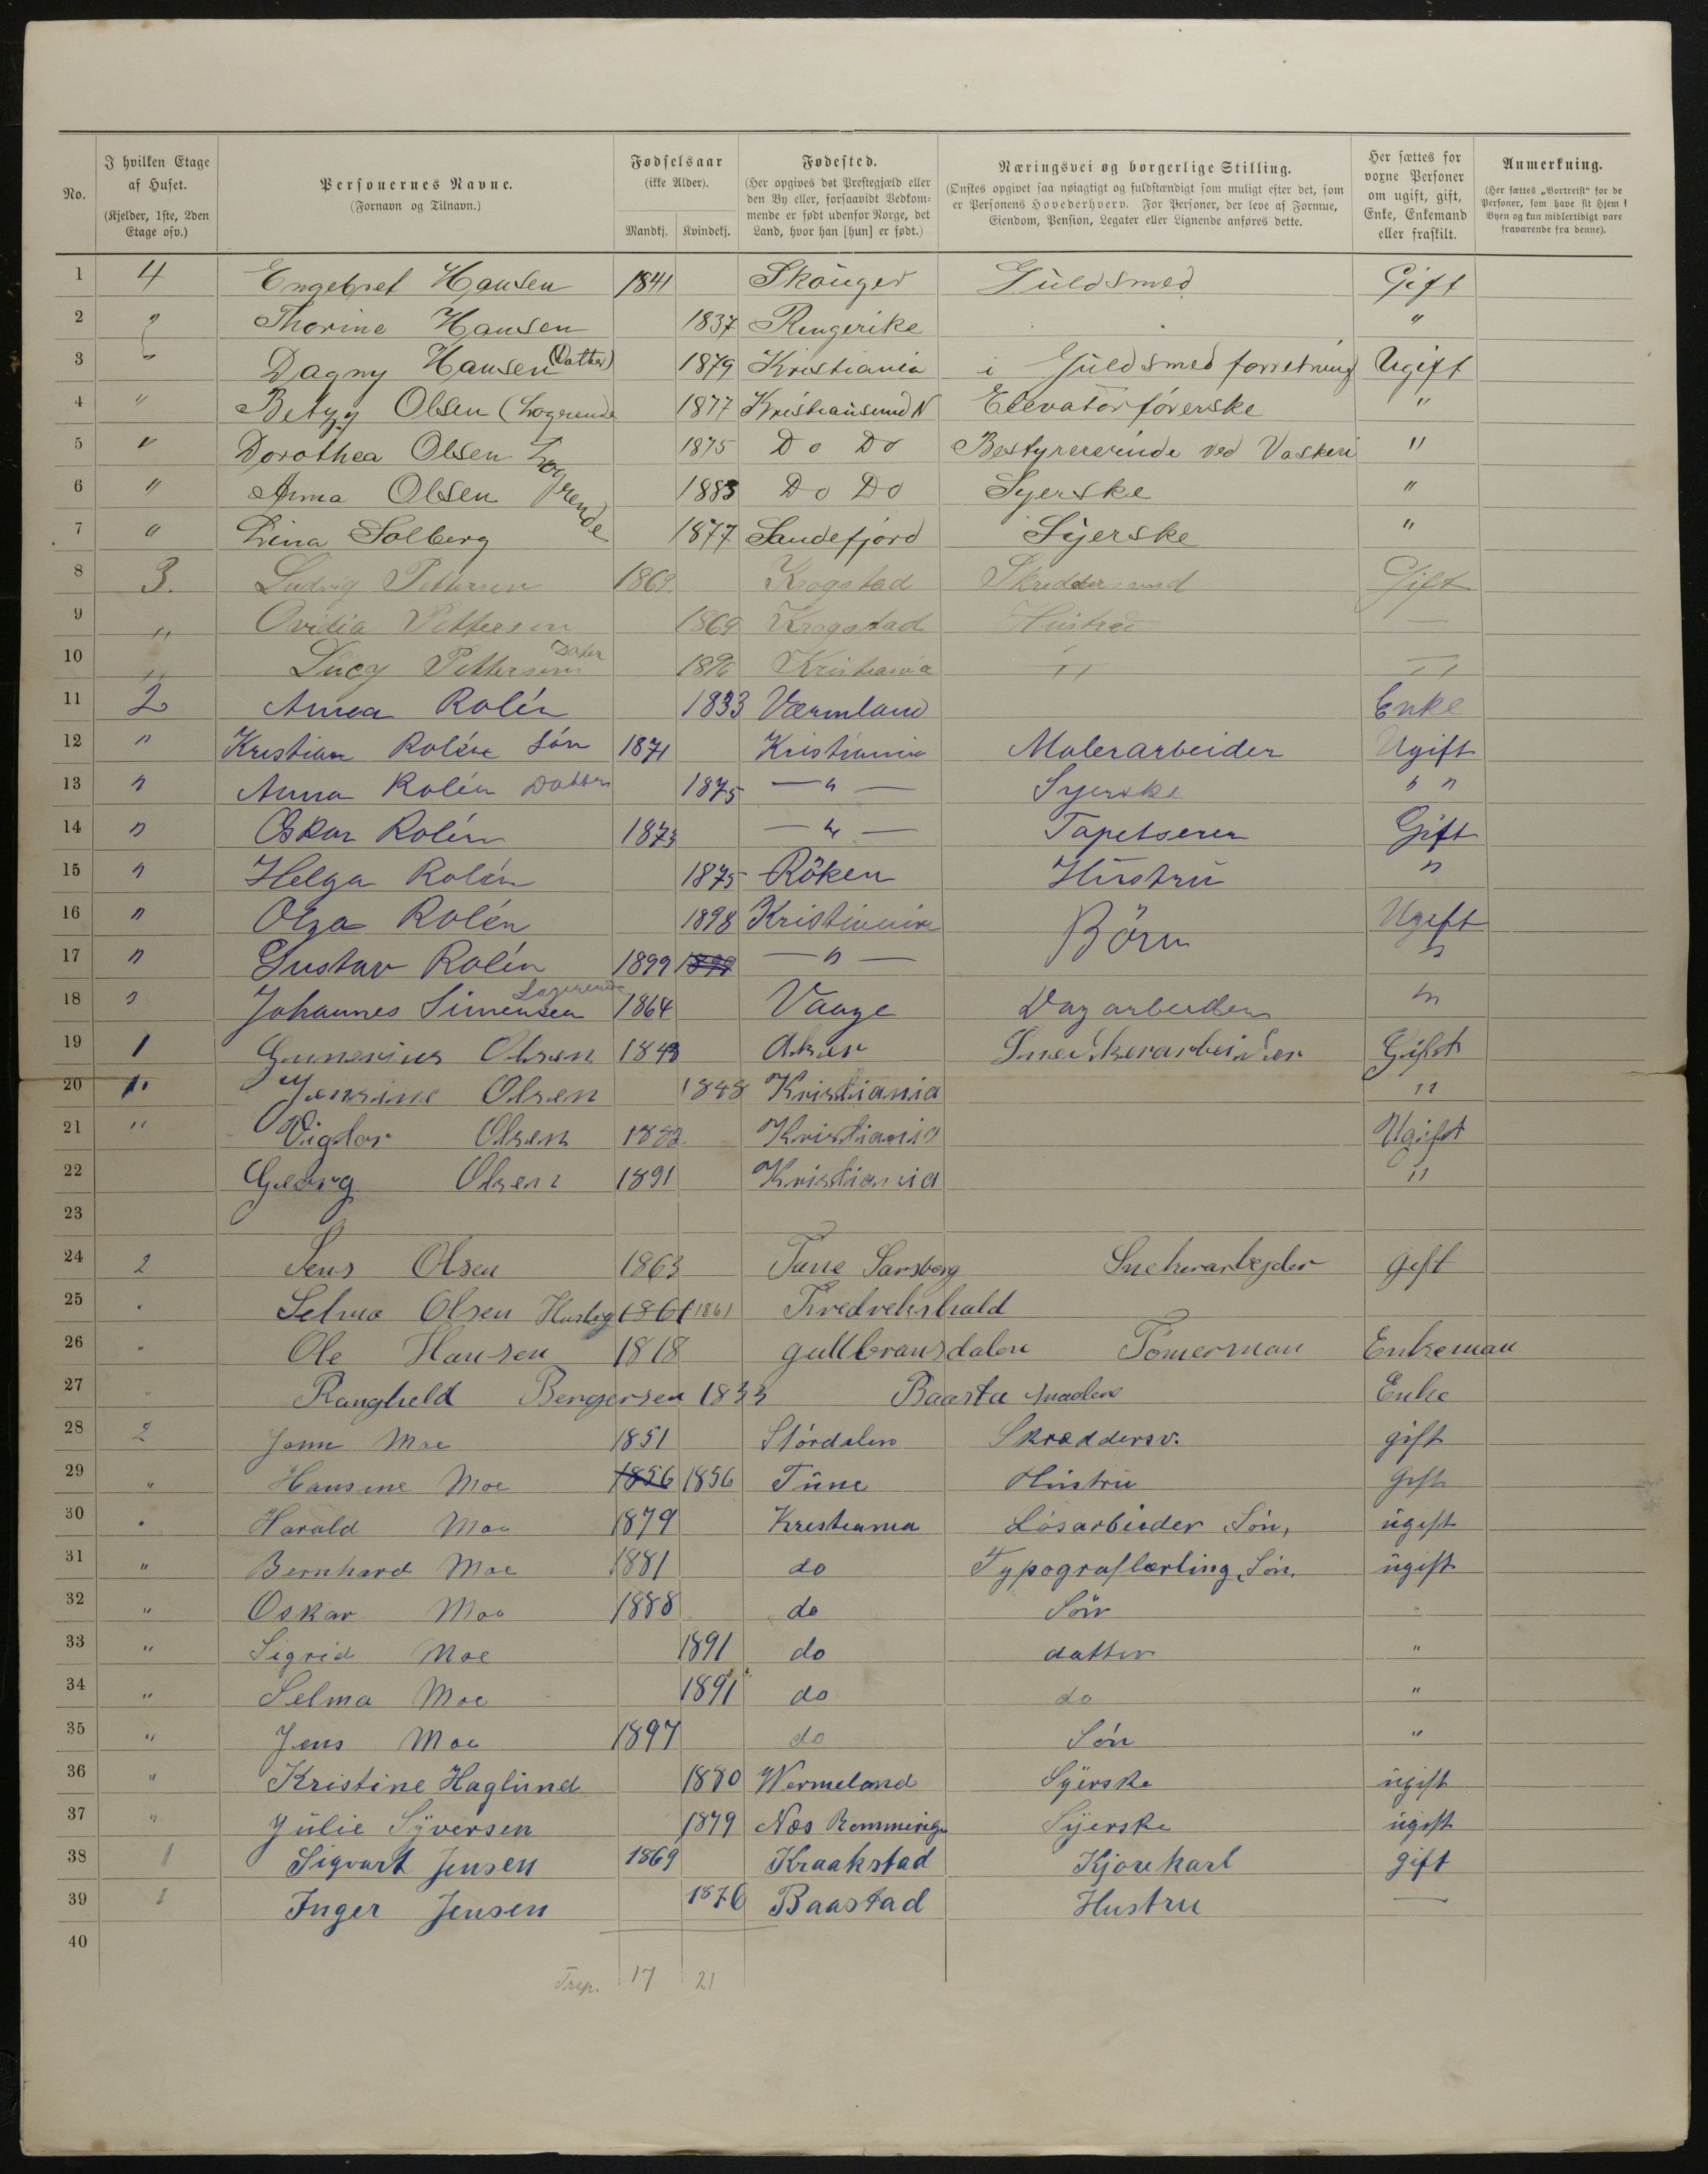 No. | I hvilken Etage af Huset. (Kjelder, 1ste, 2den Etage osv.) | Personernes Navne. (Fornavn og Tilnavn.) | Fødselsaar (ikke Alder). Mandkj. Kvindekj. | Fødested. (Her opgives det Prestegjæld eller den By eller, forsaavidt Vedkommende er født udenfor Norge, det Land, hvor han [hun] er født.) | Næringsvei og borgerlige Stilling. (Ønskes opgivet saa nøiagtigt og fuldstændigt som muligt efter det, som er Personens Hovederhverv. For Personer, der leve af Formue, Eiendom, Pension, Legater eller Lignende anføres dette. | Her sættes for voxne Personer om ugift, gift, Enke, Enkemand eller fraskilt. | Anmerkning. (Her sættes „Bortreist“ for de Personer, som have sit Hjem i Byen og kun midlertidigt vare fraværende fra denne).
1 4 Engebret Hansen 1841 Skouger Guldsmed Gift
2 " Thorine Hansen 1837 Ringerike "
3 " Dagny Hansen (Datter) 1879 Kristiania i Guldsmed forretning Ugift
4 " Betzy Olsen (Logerende 1877 Kristiansund N Elevatorførerske "
5 " Dorothea Olsen Logerende 1875 Do Do Bestyrererinde ved Vaskeri "
6 " Anna Olsen 1883 Do Do Syerske "
7 " Lina Solberg 1877 Sandefjord Syerske "
8 3. Ludvig Pettersen 1869 Krogstad Skreddersvend Gift
9 " Ovidia Pettersen 1869 Krogstad Hustru —
10 " Lucy Pettersen Dater 1896 Kristiania " "
11 2 Anna Rolén 1833 Værmland Enke
12 " Kristian Rolén Søn 1871 Kristiania Malerarbeider Ugift
13 " Anna Rolén Datter 1875 — " — Syerske " "
14 " Oskar Rolén 1873 — " — Tapetserer Gift
15 " Helga Rolén 1875 Röken Hustru "
16 " Olga Rolén 1898 Kristiania Börn Ugift
17 " Gustav Rolén 1899 1899 — " — "
18 " Johannes Simensen Logerende 1864 Vaage Dagarbeider "
19 1 Gunerius Olsen 1843 Aker Snedkerarbeider Gift
20 1. Jensine Olsen 1848 Kristiania "
21 " Vigdor Olsen 1882 Kristiania Ugift
22 Georg Olsen 1891 Kristiania "
23
24 2 Jens Olsen 1863 Tune Sarsborg Snekerarbejder gift
25 " Selma Olsen 1861 1861 Fredrekshald
26 " Ole Hansen 1818 gullbransdalen Tömerman Enkeman
27 " Rangheld Bengersen 1833 Baasta Enke
28 2 Jonn Moe 1851 Stördalen Skræddersv. gift
29 " Hansine Moe 1856 1856 Tune Hustru Gift
30 " Harald Moe 1879 Krestiania Løsarbeider Søn, ugift
31 " Bernhard Moe 1881 do Typograflærling Søn. ugift
32 " Oskar Moe 1888 do Søn "
33 " Sigrid Moe 1891 do datter "
34 " Selma Moe 1891 do do "
35 " Jens Moe 1897 do Søn "
36 " Kristine Haglund 1880 Wermeland Syerske ugift
37 " Julie Syversen 1879 Nos Rommerige Syerske ugift
38 1 Sigvart Jensen 1869 Kraakstad Kjørekarl gift
39 1 Inger Jensen 1876 Baastad Hustru —
40
17 21